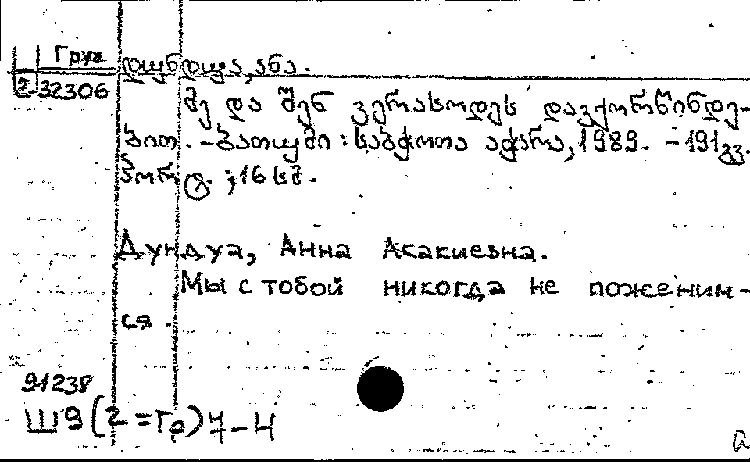 Груз
Ш დუნდუა, ანა.
2-32306
მე და შენ ვერასოდეს დავქორწინდე-
ბით. - ბათუმი : საბჭოთა აჭარა, 1989. - 191 გვ.
პორტრ. ; 16 სმ.
Дундуа, Анна Акакиевна.
Мы с тобой никогда не поженим-
ся.
91238
Ш9(2=Гр)7-4